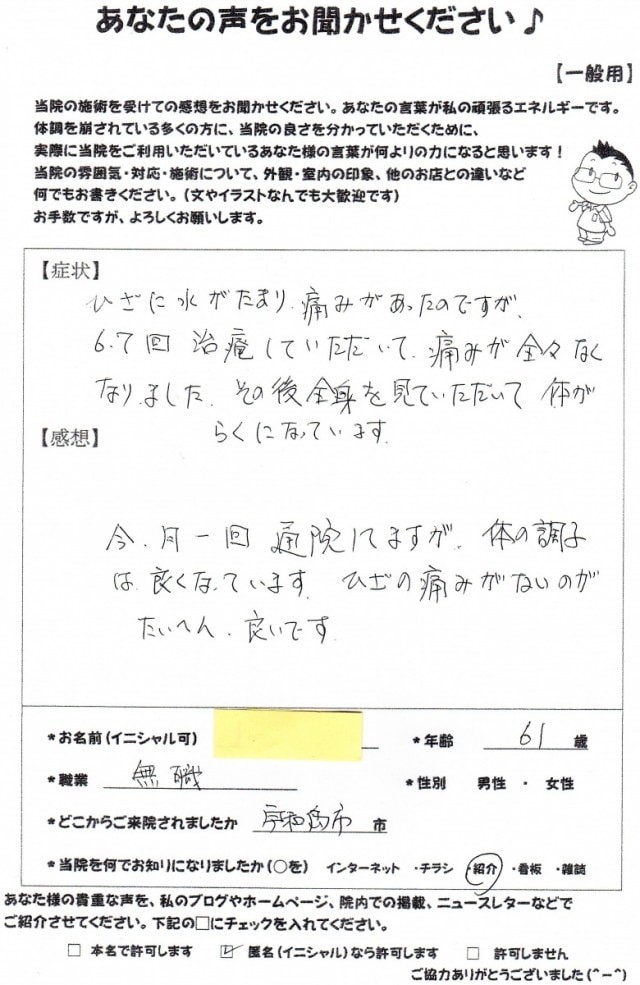 あなたの声をお聞かせください♪
【一般用】
当院の施術を受けての感想をお聞かせください。あなたの言葉が私の頑張るエネルギーです。
体調を崩されている多くの方に、当院の良さを分かっていただくために、
実際に当院をご利用いただいているあなた様の言葉が何よりの力になると思います！
当院の雰囲気・対応・施術について、外観・室内の印象、他のお店との違いなど
何でもお書きください。（文やイラストなんでも大歓迎です）
お手数ですが、よろしくお願いします。
【症状】
ひざに水がたまり、痛みがあったのですが、
6.7回 治療していただいて、痛みが全々なく
なりました。その後全身を見ていただいて 体が
らくになっています。
【感想】
今、月一回 通院してますが、体の調子
は良くなっています。ひざの痛みがないのが
たいへん、良いです。
*お名前（イニシャル可）
*年齢 61 歳
*職業 無職
*性別 男性 ・ 女性
*どこからご来院されましたか 宇和島市 市
*当院を何でお知りになりましたか（○を） インターネット ・チラシ ・紹介 ・看板 ・雑誌
あなた様の貴重な声を、私のブログやホームページ、院内での掲載、ニュースレターなどで
ご紹介させてください。下記の□にチェックを入れてください。
□ 本名で許可します ☑ 匿名（イニシャル）なら許可します □ 許可しません
ご協力ありがとうございました（^－^）